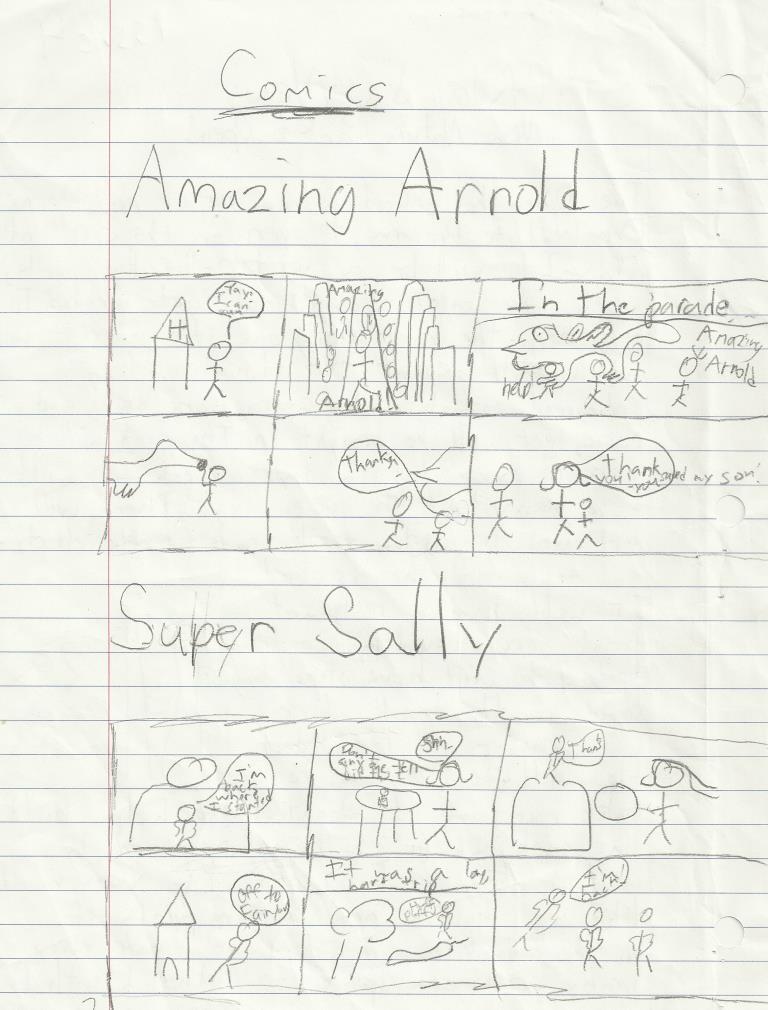 Comics
Amazing Arnold
Yay.
I can
H
Amazing
Arnold
In the parade
Amazing
Arnold
help
Thanks.
Thank
you!
you saved my son!
Super Sally
I'm
back
where
I started
Don't
tell
Shh..
Thanks
Off to
It was a long
hard trip
I'm
back!